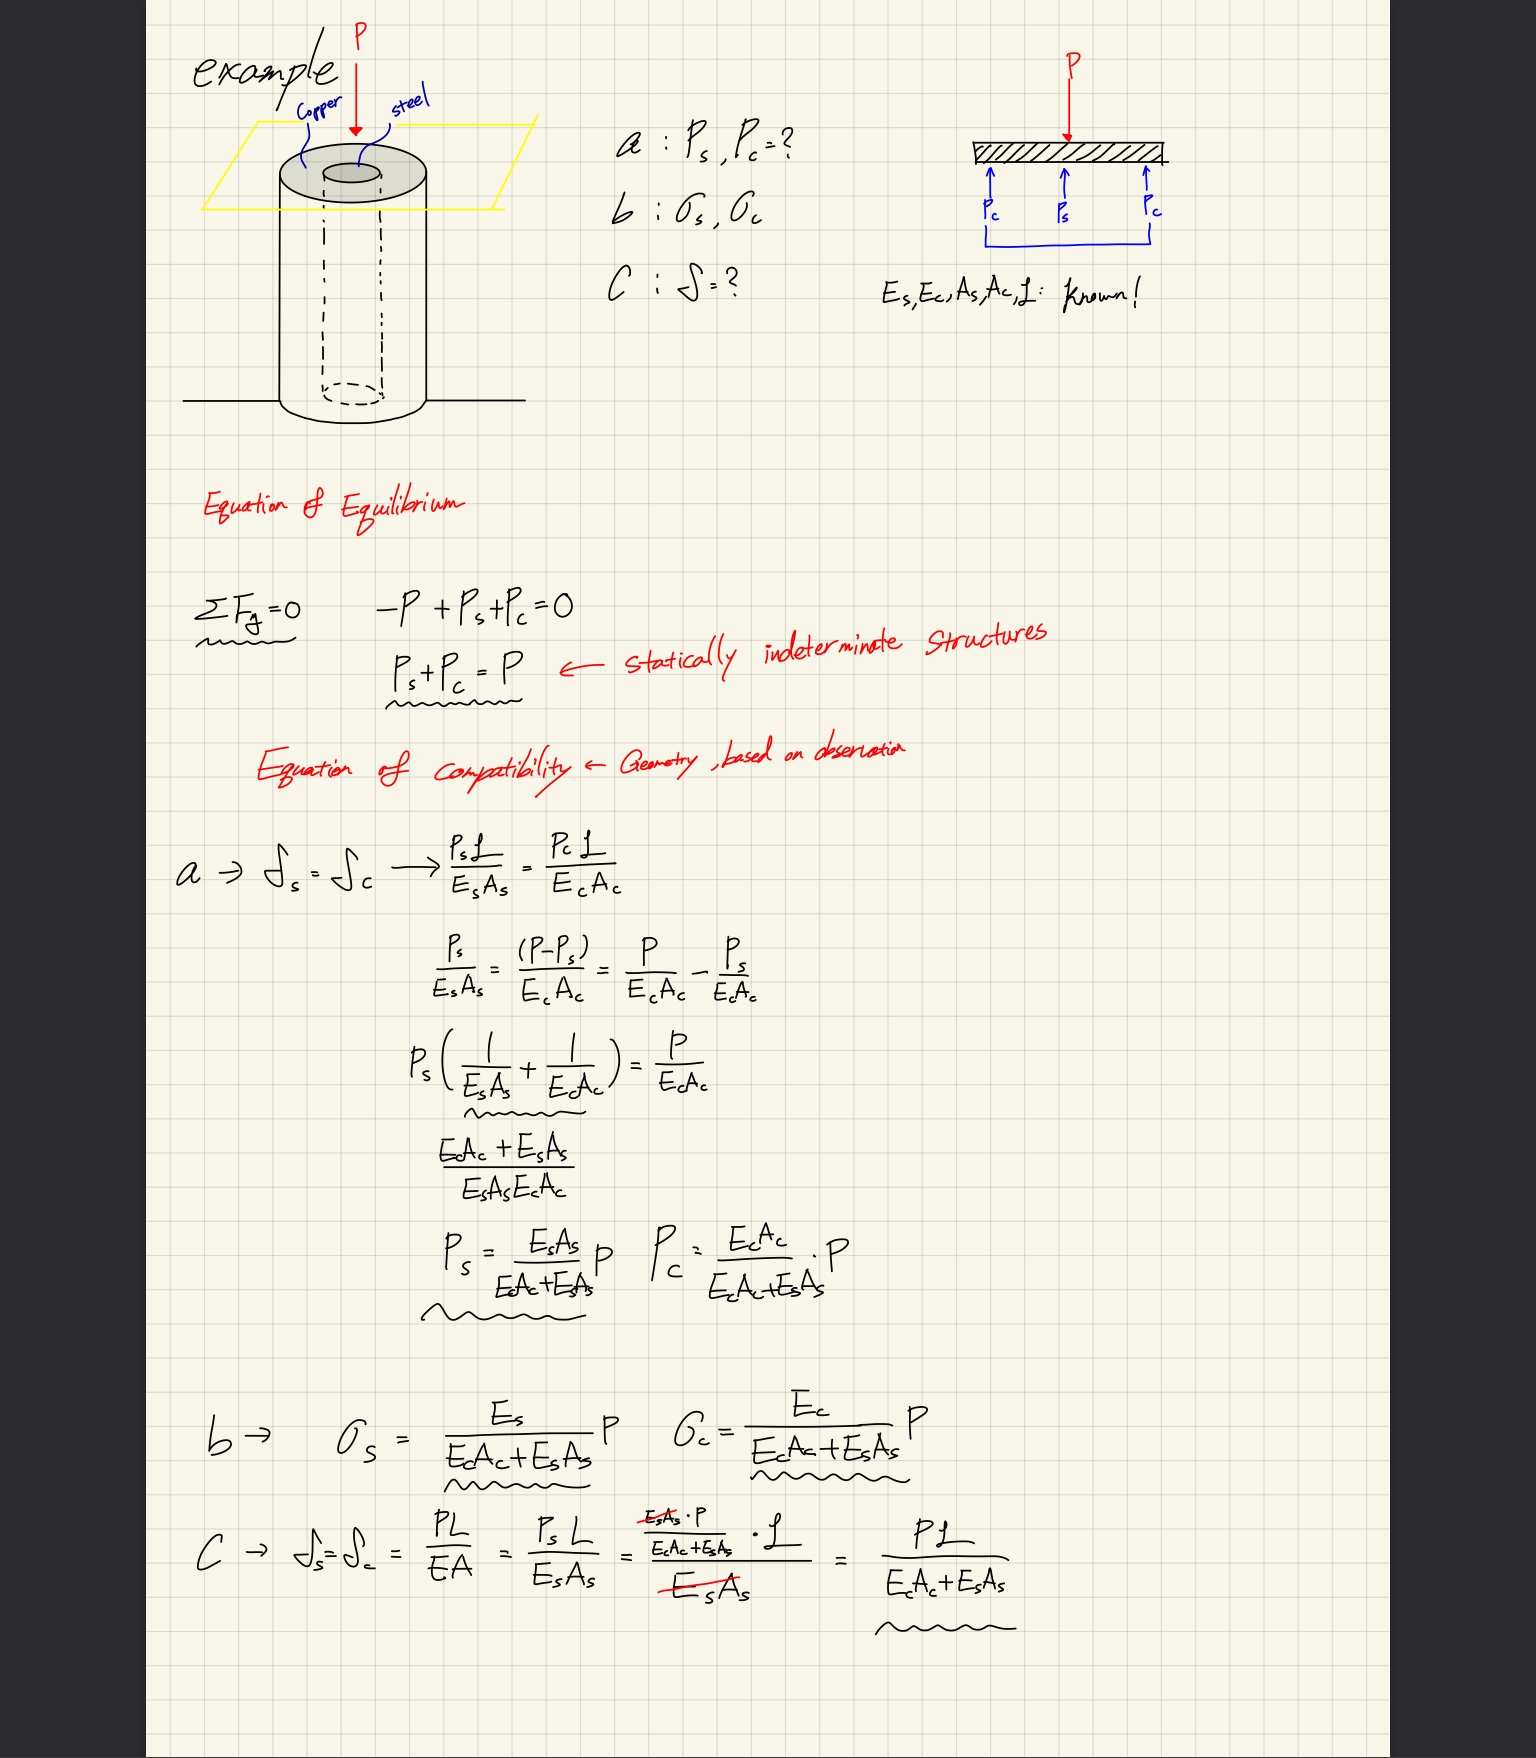 example
P
Copper
steel
a : Ps, Pc = ?
b : σs, σc
C : δ = ?
P
Pc Ps Pc
Es, Ec, As, Ac, L : known!
Equation of Equilibrium
ΣFy = 0 -P + Ps + Pc = 0
Ps + Pc = P ← statically indeterminate structures
Equation of compatibility ← Geometry, based on observation
a → δs = δc → PsL/EsAs = PcL/EcAc
Ps/EsAs = (P-Ps)/EcAc = P/EcAc - Ps/EcAc
Ps(1/EsAs + 1/EcAc) = P/EcAc
EcAc + EsAs/EsAsEcAc
Ps = EsAs/EcAc+EsAs P Pc = EcAc/EcAc+EsAs · P
b → σs = Es/EcAc+EsAs P σc = Ec/EcAc+EsAs P
C → δs = δc = PL/EA = PsL/EsAs = EsAs·P/EcAc+EsAs · L/EsAs = PL/EcAc+EsAs